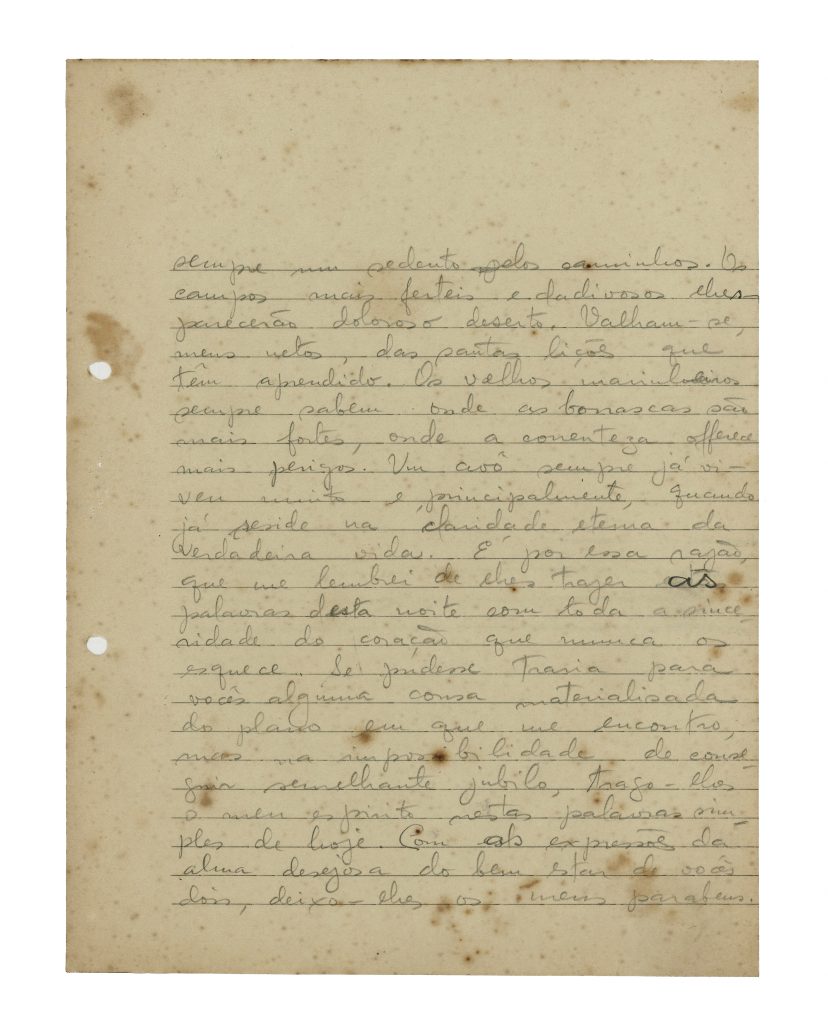 sempre um sedento pelos caminhos. Os
campos mais ferteis e dadivosos lhes
parecerão doloroso deserto. Valham-se,
meus netos, das santas lições que
têm aprendido. Os velhos marinheiros
sempre sabem onde as borrascas são
mais fortes, onde a correnteza offerece
mais perigos. Um avô sempre já vi-
veu muito e, principalmente, quando
já reside na claridade eterna da
verdadeira vida. É por essa razão,
que me lembrei de lhes trazer as
palavras desta noite com toda a since-
ridade do coração que nunca os
esquece. Se pudesse traria para
vocês alguma cousa materialisada
do plano em que me encontro,
mas na impossibilidade de conse-
guir semelhante jubilo, trago-lhes
o meu espirito nestas palavras sim-
ples de hoje. Com as expressões da
alma desejosa do bem estar de vocês
dois, deixo-lhes os meus parabens.